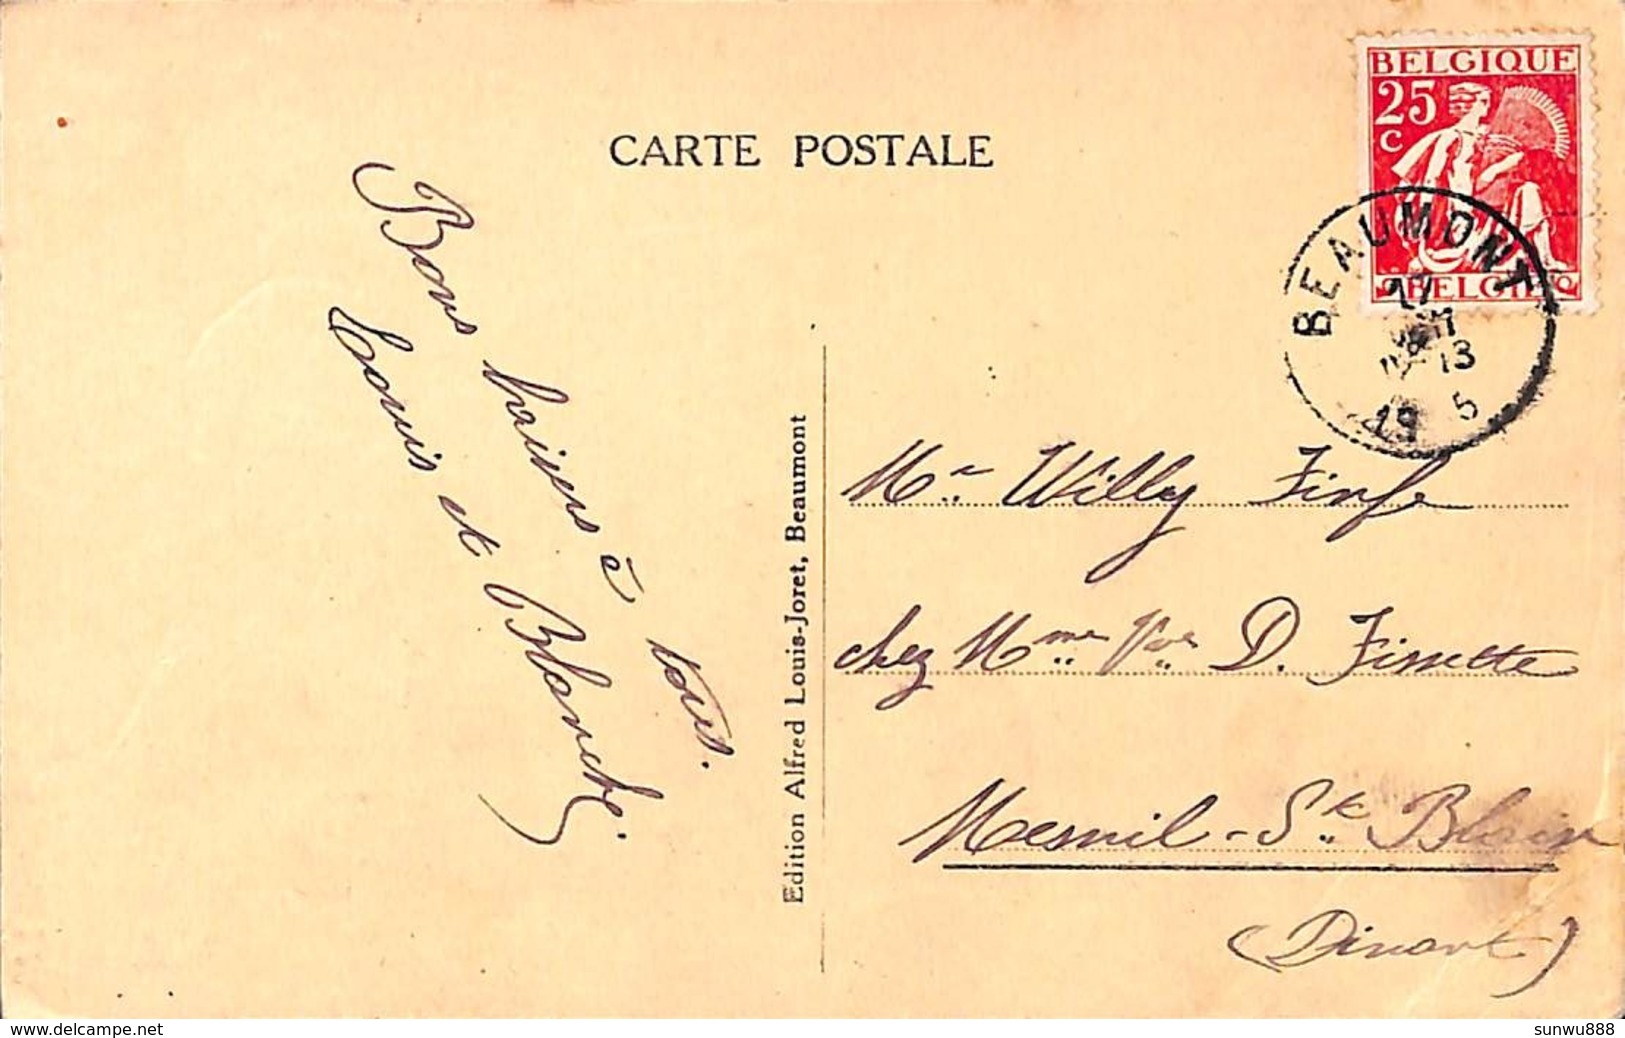 CARTE POSTALE
BELGIQUE
25
C
BELGIË
BEAUMONT
13
19 5
Bons baisers à tous.
Louis et Blanche.
Edition Alfred Louis-Joret, Beaumont
Mr. Willy
chez Mme Vve D. Finette
Mesnil-St. Blaise
(Dinant)
sunwu888
www.delcampe.net